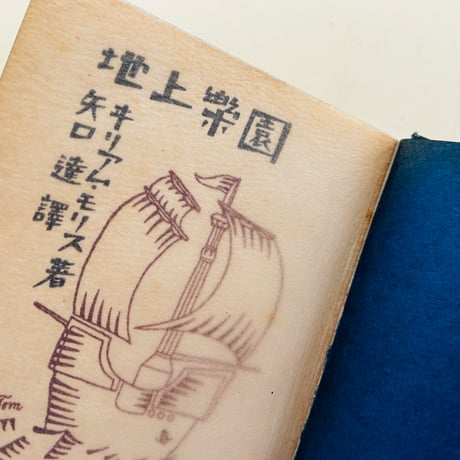 地上樂園
ヰリアム・モリス著
矢口達譯
Tom